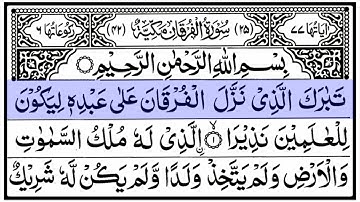 اٰیَاتُهَا ۷۷ (۲۵) سُوْرَةُ الْفُرْقَانِ مَكِّيَّةٌ (۴۲) رُكُوْعَاتُهَا ۶
بِسْمِ اللهِ الرَّحْمٰنِ الرَّحِيْمِ
تَبٰرَكَ الَّذِيْ نَزَّلَ الْفُرْقَانَ عَلٰى عَبْدِهٖ لِيَكُوْنَ
لِلْعٰلَمِيْنَ نَذِيْرًا ۙ‏﴿۱﴾ الَّذِيْ لَهٗ مُلْكُ السَّمٰوٰتِ
وَالْاَرْضِ وَلَمْ يَتَّخِذْ وَلَدًا وَّلَمْ يَكُنْ لَّهٗ شَرِيْكٌ